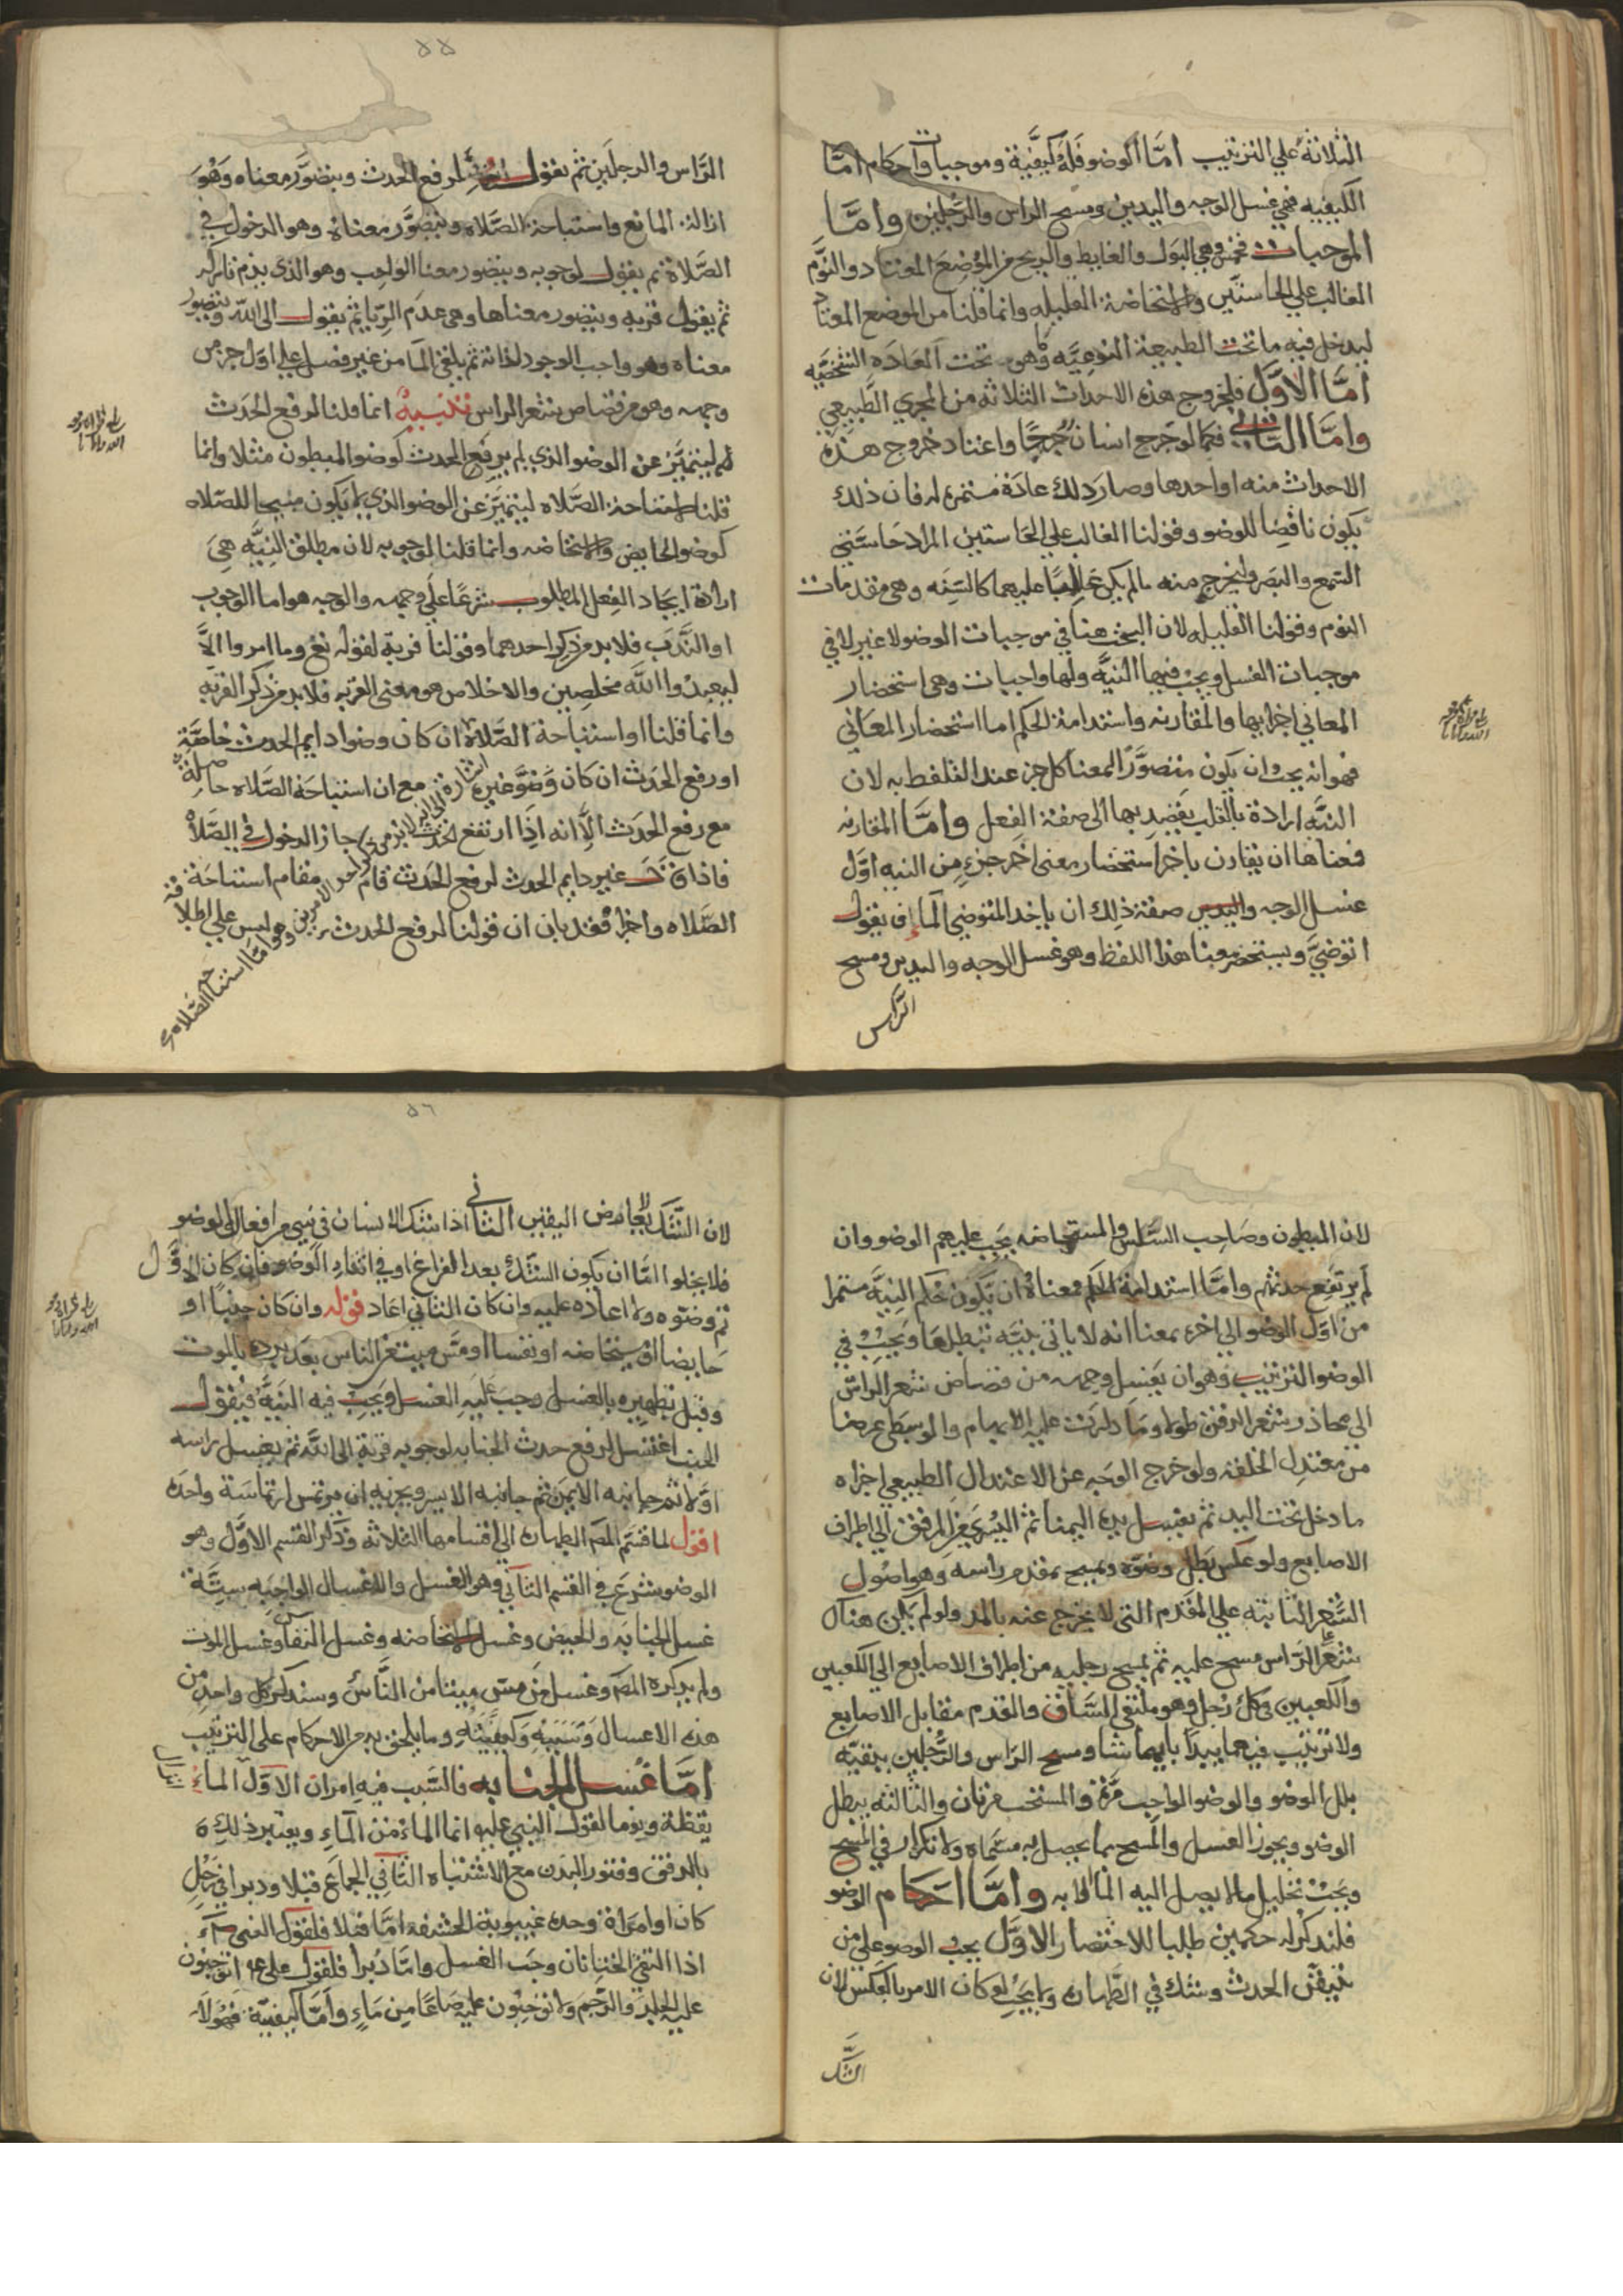 الثلاثة علي الترتيب اما الوضو فله كيفية وموجبات واحكام امّا
الكيفيه فهي غسل الوجه واليدين ومسح الراس والرجلين وامَّا
الموجبات فخمس وهي البول والغايط والريح من الموضع المعتاد والنوم
الغالب علي الحاستين والاستحاضة القليله وانما قلنا من الموضع المعتاد
ليدخل فيه ما تحت الطبيعة النوعيّه وما هو تحت العادَه الشخصّيه
امَّا الاوَّل فلخروج هذه الاحداث الثلاثه من المجري الطَّبيعي
وامَّا الثاني فكما لو خرج انسان واعتاد خروج هذه
الاحداث منه او احدها وصار ذلك عادَة مستمرة له فان ذلك
يكون ناقضا للوضو وقولنا الغالب علي الحاستين المراد حاستي
السمع والبصر وليخرج منه ما لم يكن غالبا عليهما كالسِنَه وهي مقدمات
النوم وقولنا القليله لان البحث هنا في موجبات الوضو لا غير لا في
موجبات الغسل ويجب فيها النيَّه ولها واجبات وهي استحضار
المعاني اجزايها والمقارنه واستدامة الحكم اما استحضار المعاني
فهو انه يجب ان يكون متصوَّرا لمعنا كل جز عند التلفظ به لان
النيَّه ارادة بالقلب يقصد بها الى صفة الفعل وامَّا المقارنه
فمعناها ان يقارن باخر استحضار معنى اخر جزءٍ من النيه اوَّل
غسل الوجه واليدين صفة ذلك ان ياخد المتوضي الماء يقول
اتوضيَّ ويستحضر معنا هذا اللفظ وهو غسل الوجه واليدين ومسح
الراس
٥٥
الرَّاس والرجلَين ثم يقول لرفع الحدث ويتصوَّر معناه وهُوَ
ازالة المانع واستباحة الصَّلاه ويتصوَّر معناه وهو الدخول في
الصَّلاة ثم يقول لوجوبه ويتصور معنا الواجب وهو الذي يذم تاركه
ثم يقول قربه ويتصور معناها وهي عدَم الرِّيا ثم يقول الى اللّه ويتصور
معناه وهو واجب الوجود لذاته ثم يلقي الما من غير فصل علي اوَّل جز من
وجهه وهو من قصاص شعر الراس تنبيه انما قلنا لرفع الحَدث
ليتميَّز عن الوضو الذي لم يرفع الحدث كوضو المبطون مثلا وانما
قلنا استباحة الصَّلاه ليتميَّز عن الوضو الذي لم يكون مبيحا للصّلاه
كوضو الحايض والاستحاضه وانما قلنا لوجوبه لان مطلق النِيَّه هِيَ
ارادة ايجاد الفِعل المطلوب شرعًا علَي وجهه والوجه هو اما الوجوب
او النَّدَب فلا بد من ذكر احدهما وقولنا قربة لقوله تع وما امروا الاَّ
ليعبدُوا اللَّه مخلصِين والاخلاص هو معنى القربه فلا بد من ذكر القربه
وانما قلنا او استباحة الصَّلاه ان كان وضوا دايم الحدث خاصَّة
او رفع الحَدث ان كان وضوَّ غيره اشارة مع ان استباحة الصَّلاه حاصلة
مع رفع الحدَث الاَّ انه اذَا ارتفع الحدث جاز الدخول في الصَّلاه
فاذا غير دايم الحدث لرفع الحَدث قام مقام استباحَة
الصَّلاه واخرا فقد بان ان قولنا لرفع الحدث ليس علي اطلاقه
لان المبطون وصَاحِب السَّلس والمستحاضه يجَب عليهم الوضو وان
لم يرتفع حدثهم وامَّا استدامة الحكم فمعناه ان يكون حكم النِيَّه مستمرا
من اوّل الوضو الي اخره بمعنا انه لا ياتي بنيَّه تبطلها ويَجبُ في
الوضو الترتيب وهو ان يغسِل وجهه من قصاص شعر الرّاس
الي محاذر شعر الذقن طولا وما دارت عليه الابهام والوسطي عرضا
من معتدِل الخلقة ولو خرج الوَجه عن الاعتدال الطبيعي اجزاه
ما دخل تحت اليد ثم يغسل يده اليمنا ثم اليُسري من المرفق الي اطراف
الاصابع ولو عكس بطل وضوَّه ويمسح بمقدم راسه وهو اصُول
الشَّعر النَّابته علي المقَدم التي لا يخرج عنه بالمد ولو لم يكن هناك
شعر الرَّاس مسح عليه ثم يمسح رجليه من اطراف الاصابع الي الكعبين
والكعبين في كل رجل وهو ملتقي السَّاق والقدم مقابل الاصابع
ولا ترتيب فيهما يبدَا بايهما شا ومسح الرَاس والرَّجلين ببقيَّه
بلل الوضو والوضو الواجب مَرَّة والمستحب مرتان والثالثه يبطل
الوضو ويجوز الغسل والمسح بما يحصل به مسّماه ولا تكرار في المسح
ويجبْ تخليل ما لا يصل اليه الما الا به وامَّا احكام الوضو
فلنذكر له حكمين طلبا للاختصار الاوَّل يجب الوضو علي من
تيقّن الحدث وشك في الطَّهاره ولا يجَب لو كان الامر بالعكس لان
الشَّك
٥٦
لان الشَّك لا يعارض اليقين الثاني اذا شك الانسان في شي من افعال الوضو
فلا يخلوا امَّا ان يكون الشَّك بعد الفراغ او في اثناء الوضو فان كان الاوَّل
تم وضوّه ولا اعاده عليه وان كان الثاني اعاد قوله وان كان جنبًا او
حايضا او مستحاضه او نفسا او مَسَّ ميت من الناس بَعد برده بالموت
وقبل تطهيره بالغسل وجب عليه الغسل ويجب فيه النيَّه فيقول
الجنب اغتسل لرفع حدث الجنابه لوجوبه قربة الى اللَّه ثم يغسل براسه
اوّلا ثم جانبه الايمن ثم جانبه الايسر ويجزيه ان يرتمس ارتماسَة واحدَه
اقول لما قسَّم المصَ الطهاره الي اقسامها الثلاثه وذكر القسم الاوَّل وهو
الوضو شَرَع في القسم الثاني وهو الغسل والاغسال الواجبه ستَّة
غسل الجنابَه والحيض وغسل الاستحاضه وغسل النفاس وغسل الموت
ولم يذكره المصَ وغسل من مسَّ ميتا من النَّاس وسنذكر كل واحدٍ من
هذه الاغسال وَسَببهِ وَكيفيَّتهِ وما يلحق به من الاحكام على الترتيب
امَّا غسل الجنابه فالسَّبب فيه امران الاوّل انزال الماءِ
يقظة ونوما لقول النبي عليه انما الماء من الماءِ ويعتبر ذلك
بالدفق وفتور البدَن مع الاشتباه الثاني الجماع قبلا ودبرا في رجُلٍ
كان او امرَاة وحده غيبوبة الحشفة امَّا قبلا فلقول النبي
اذا التقي الختانان وجَب الغسل وامَّا دُبرا فلقول علي ع اتوجبون
عليه الجلد والرَّجم ولا توجبُون عليه صَاعًا مِن مَاءٍ وامَّا كيفيّة فهُو اوَّلا